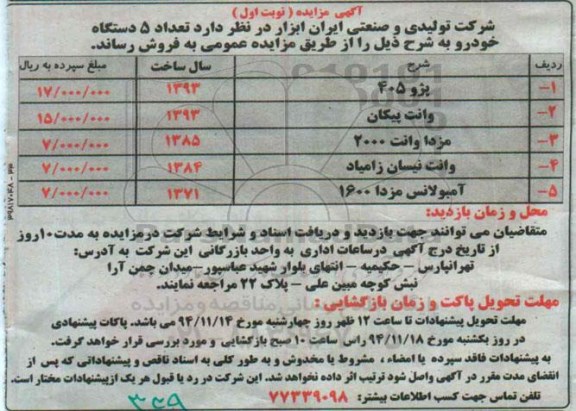 آگهی مزایده ( نوبت اول )
شرکت تولیدی و صنعتی ایران ابزار در نظر دارد تعداد ۵ دستگاه
خودرو به شرح ذیل را از طریق مزایده عمومی به فروش رساند.
ردیف شرح سال ساخت مبلغ سپرده به ریال
۱– پژو ۴۰۵ ۱۳۹۳ ۱۷/۰۰۰/۰۰۰
۲– وانت پیکان ۱۳۹۳ ۱۵/۰۰۰/۰۰۰
۳– مزدا وانت ۲۰۰۰ ۱۳۸۵ ۷/۰۰۰/۰۰۰
۴– وانت نیسان زامیاد ۱۳۸۴ ۷/۰۰۰/۰۰۰
۵– آمبولانس مزدا ۱۶۰۰ ۱۳۷۱ ۷/۰۰۰/۰۰۰
محل و زمان بازدید:
متقاضیان می توانند جهت بازدید و دریافت اسناد و شرایط شرکت درمزایده به مدت۱۰روز
از تاریخ درج آگهی درساعات اداری به واحد بازرگانی این شرکت به آدرس:
تهرانپارس – حکیمیه – انتهای بلوار شهید عباسپور–میدان چمن آرا
نبش کوچه مبین علی – پلاک ۲۲ مراجعه نمایند.
مهلت تحویل پاکت و زمان بازگشایی :
مهلت تحویل پیشنهادات تا ساعت ۱۲ ظهر روز چهارشنبه مورخ ۹۴/۱۱/۱۴ می باشد. پاکات پیشنهادی
در روز یکشنبه مورخ ۹۴/۱۱/۱۸ راس ساعت ۱۰ صبح بازگشایی و مورد بررسی قرار خواهد گرفت.
به پیشنهادات فاقد سپرده یا امضاء ، مشروط یا مخدوش و به طور کلی به اسناد ناقص و پیشنهاداتی که پس از
انقضای مدت مقرر در آگهی واصل شود ترتیب اثر داده نخواهد شد. این شرکت در رد یا قبول هر یک ازپیشنهادات مختار است.
تلفن تماس جهت کسب اطلاعات بیشتر: ۷۷۳۳۹۰۹۸